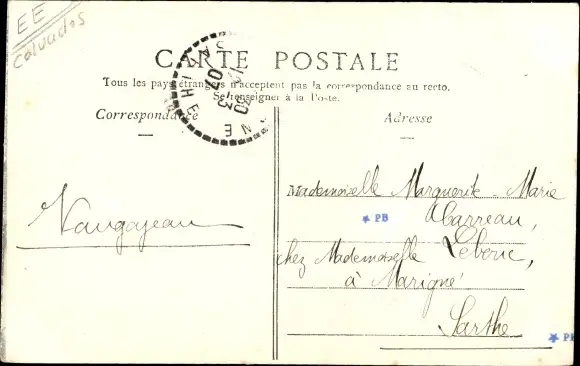 EE
Calvados
CARTE POSTALE
Tous les pays étrangers n'acceptent pas la correspondance au recto.
Se renseigner à la Poste.
Correspondance
Adresse
Vaugoyeau
Mademoiselle Marguerite-Marie
PB
Abarreau,
chez Mademoiselle Lebouc,
à Marigné
Sarthe